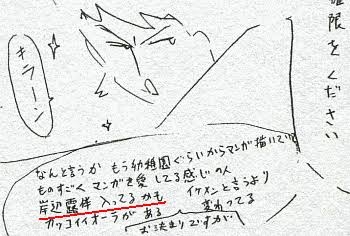 権限をください
キラーン
なんと言うか もう幼稚園ぐらいからマンガ描いていて
ものすごく マンガを愛してる感じの人
岸辺露伴 入ってるかも
イケメンと言うより
カッコイイオーラが ある
変わってる
お決まりですが